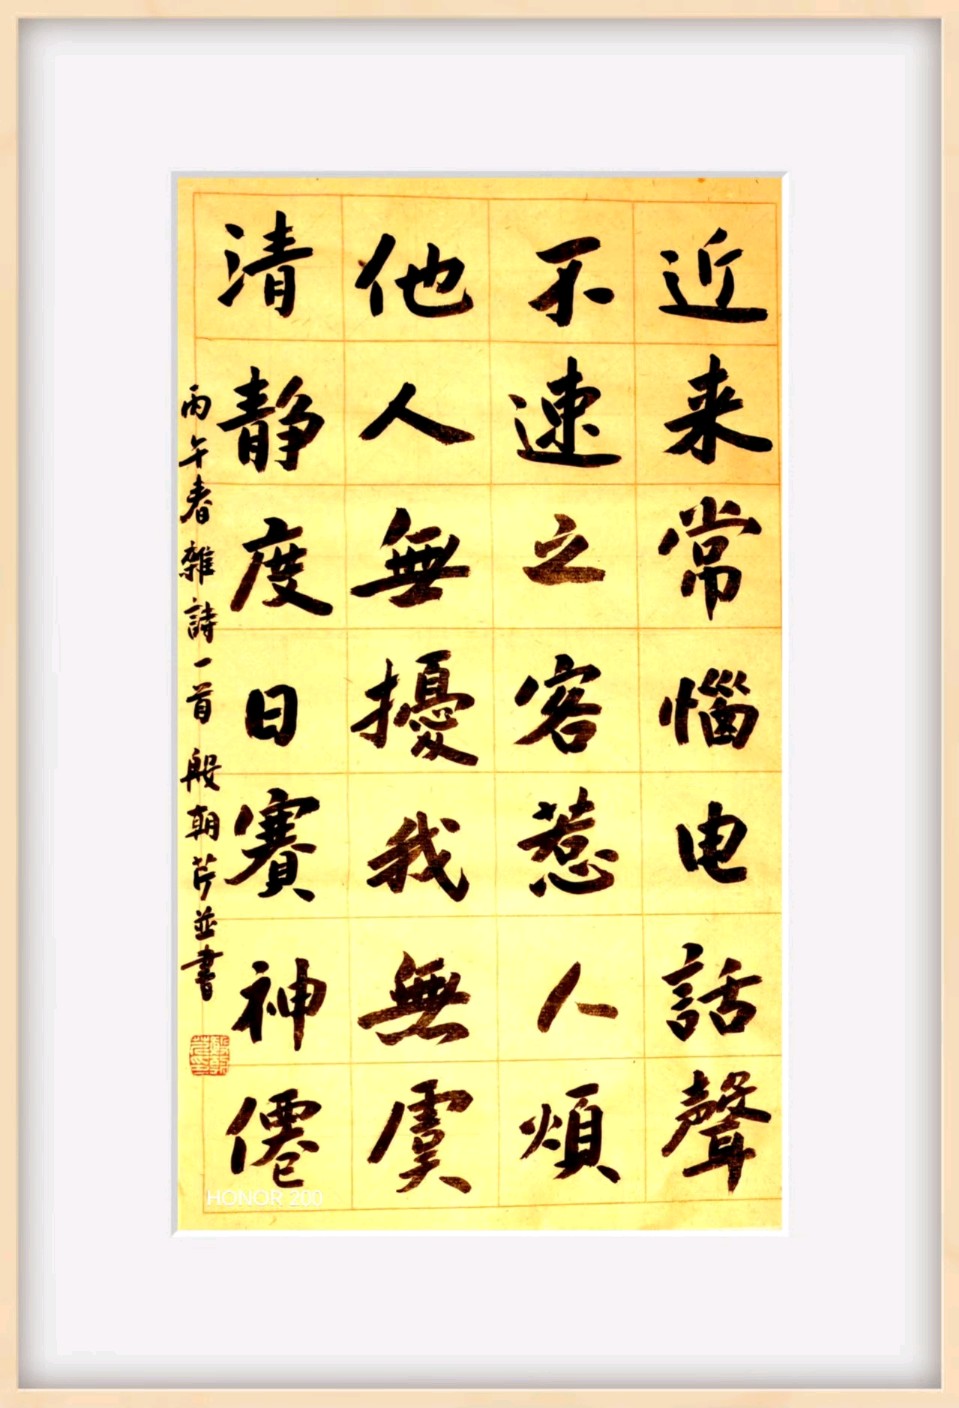 近来常惱电話聲
不速之客惹人煩
他人無擾我無虞
清静度日賽神僊
丙午春雜詩一首殷朝芹並書
HONOR 200